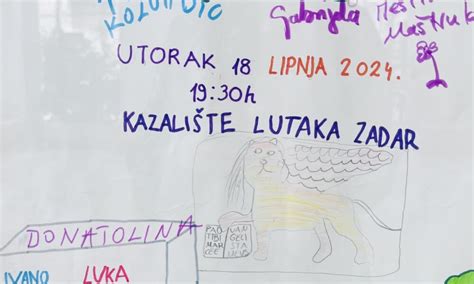 Gabrijela
UTORAK 18 LIPNJA 2024.
19:30h
KAZALIŠTE LUTAKA ZADAR
PAO
TIBI
MAR
CEE
VAN
GELI
STA
DONATOLINA
IVANO LUKA